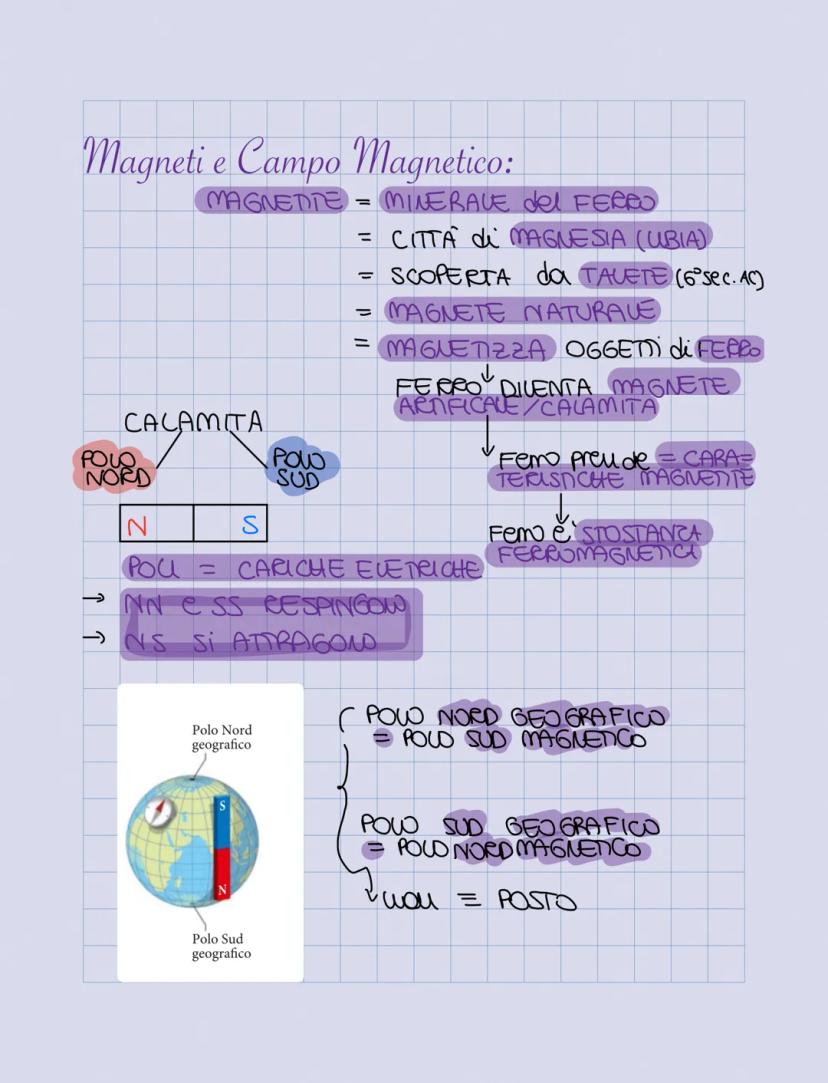 Magneti e Campo Magnetico:
MAGNETITE = MINERALE del FERRO
= CITTÀ di MAGNESIA (LIBIA)
= SCOPERTA da TALETE (6° sec. AC)
= MAGNETE NATURALE
= MAGNETIZZA OGGETTI di FERRO
↓
FERRO DIVENTA MAGNETE
ARTIFICALE/CALAMITA
↓
Ferro prende = CARA=
TERISTICHE MAGNETITE
↓
Ferro è STOSTANZA
FERROMAGNETICA
CALAMITA
POLO
NORD
POLO
SUD
N S
POLI = CARICHE ELETRICHE
→ NN e SS RESPINGONO
→ NS Si ATTRAGONO
Polo Nord
geografico
S
N
Polo Sud
geografico
POLO NORD GEOGRAFICO
= POLO SUD MAGNETICO
POLO SUD GEOGRAFICO
= POLO NORD MAGNETICO
NON = POSTO